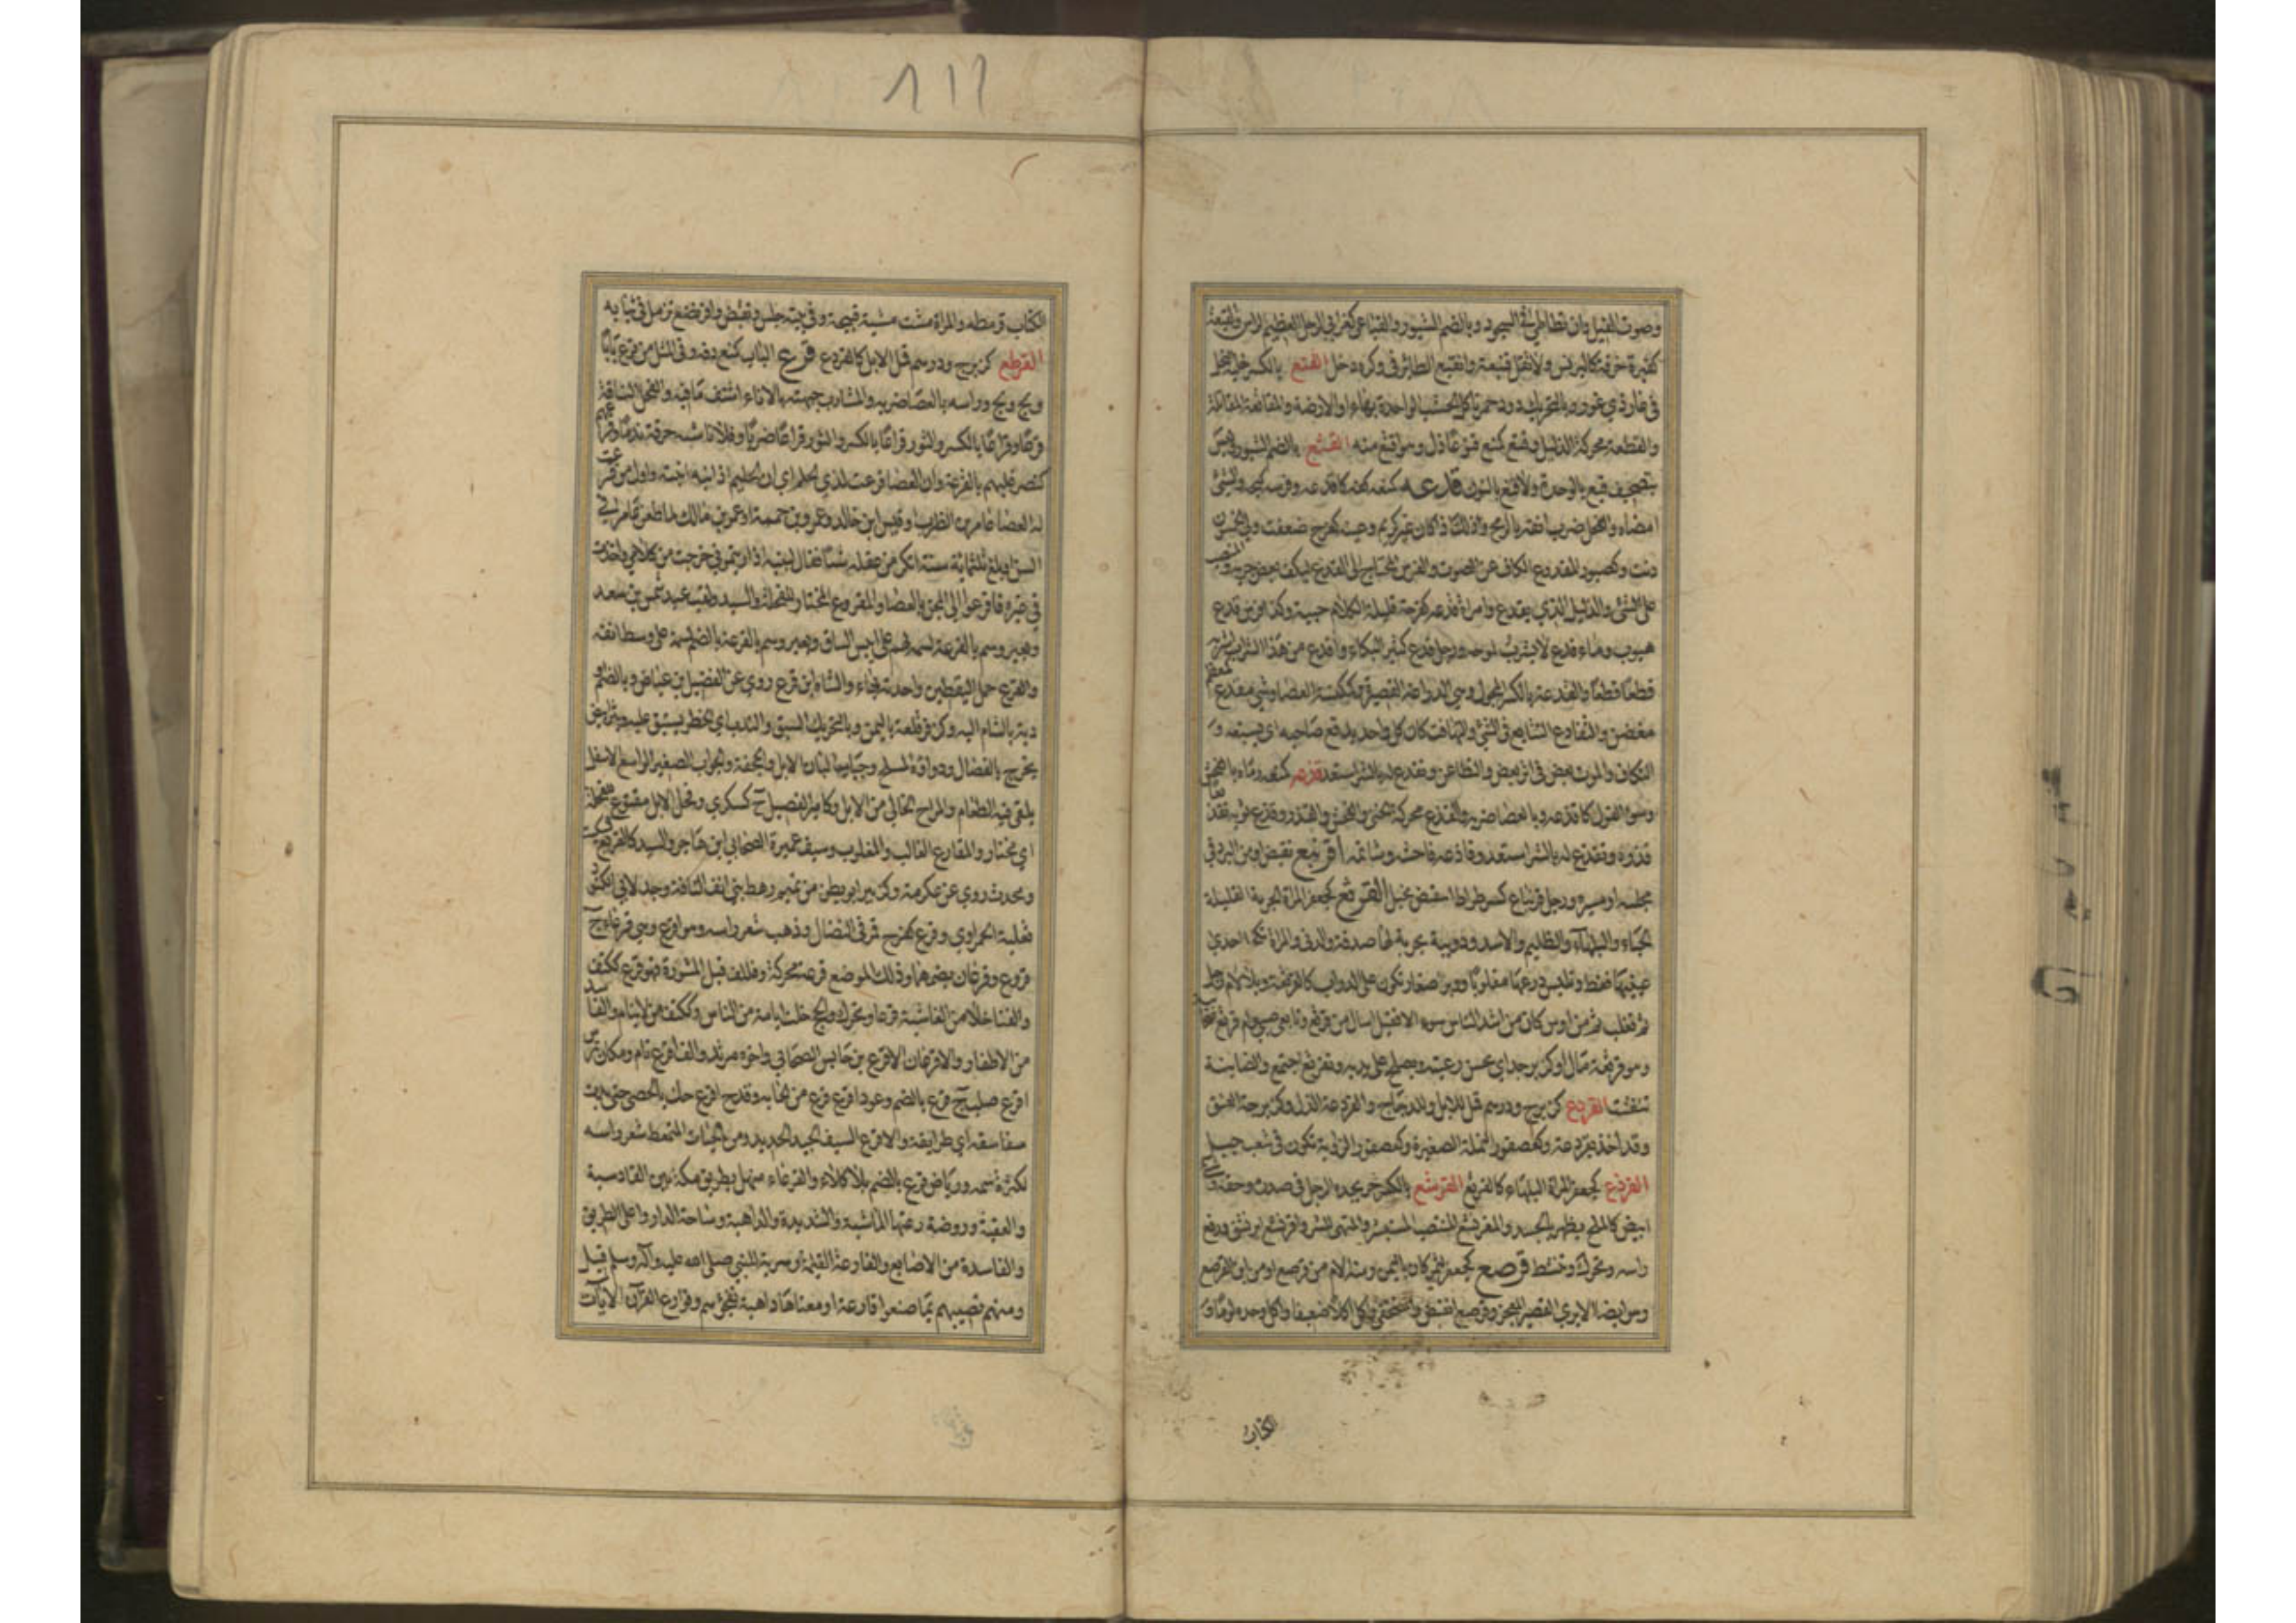 وصوت الفيل وان تطاطئ في السجود وبالضم الشبور والقباعي كغرابي الرجل العظيم الراس والقبعة
كقبرة خرقة كالبرنس ولا تقل قنبعة وانقبع الطائر في وكره دخل القتع بالكسر
في غار ذي غور وبالتحريك دود حمر تاكل الخشب الواحدة بهاء او الارضة والمقاتعة المقاتلة
والقطعة محركة الذليل وقتع كمنع قتوعا ذل وهو اقتع منه القثع بالضم الشبور وليس
بتصحيف قبع بالوحدة ولا قنع بالنون قدعه كمنعه كفه كاقدعه وفرسه كبحه والشئ
امضاه والفحل ضرب انفه بالرمح وذلك اذا كان غير كريم وعينه كفرح ضعفت ولي الخمسون
دنت وكصبور المقدوع الكاف عن الصوت والفرس المحتاج الى القدع ليكف بعض جريه والمنصب
على الشئ والذليل الذي يقدع وامراة قدعة كفرحة قليلة الكلام حيية وككتف من قدع
هيوب وماء قدع لا يشرب لملوحته ورجل قدع كثير البكاء واقدع من هذا الشراب اشربه
قطعا قطعا والقدعة بالكسر المجول وهي الدراعة القصيرة وككنسة العصا وشئ مقدع كمعظم
مغضن والتقادع التتابع في الشئ والتهافت كان كل واحد يدفع صاحبه اي يسبقه و
التكاف والموت بعض في اثر بعض والتطاعن وتقدع له بالشر استعد قذعه كمنعه رماه بالفحش
وسوء القول كاقذعه وبالعصا ضربه والقذع محركة الخنى والفحش والقذر وقذع ثوبه تقذيعا
قذره وتقذع له بالشر استعد وقاذعه فاحشه وشاتمه اقرنبع تقبض او من البرد في
مجلسه او مسيره ورجل قرنباع كسرطراط منقبض بخيل القرثع كجعفر المراة الجرية القليلة
الحياء والبلهاء والظليم والاسد ودويبة بحرية لها صدفة والدني والمراة تكحل احدى
عينيها فقط وتلبس درعها مقلوبا ووبر صغار تكون على الدواب كالقرثعة وبلا لام رجل
ثم تغلب ثم من اوس كان من اشد الناس سؤالا فقيل اسال من قرثع وتابعي صبي وام قرثع
وهو قرثعة مال وكزبرجة اي يحسن رعيته ويصلح على يديه وتقرثع اجتمع والضاينة
تنفشت القردع كزبرج ودرهم قمل للابل والدجاج والقردعة الذل وكزبرجة العنق
وقد اخذ بقردعته وكعصفور النملة الصغيرة وكعصفورة الزاوية تكون في شعب جبل
القرذع كجعفر المراة البلهاء كالقرثع القرشع بالكسر حر يجده الرجل في صدره وحلقه وشئ
ابيض كالملح يظهر بالجسد والمقرنشع المنتصب المستبشر والمتهيئ للشر واقرنشع ابرنشق ورفع
راسه وتحرك وتنشط قرصع كجعفر لئيم كان باليمن ومنه الام من قرصع او من ابن القرصع
وهو ايضا الاير القصير المعجر وقرصع انقبض واستخفى واكل اكلا ضعيفا واكل وحده لؤما و
الكتاب
الكتاب قرمطه والمراة مشت مشية قبيحة وفي بيته جلس وتقبض واقرنصع تزمل في ثيابه
القرطع كزبرج ودرهم قمل الابل كالقردع قرع الباب كمنع دقه وفي المثل من قرع بابا
ولج ولج وراسه بالعصا ضربه والشارب جبهته بالاناء اشتف ما فيه والفحل الناقة
قرعا وقراعا بالكسر والثور قراعا بالكسر والثور قراعا ضربا وفلانا سنه حرقة ندما وقرعهم
كنصر غلبهم بالقرعة وان العصا قرعت لذي الحلم اي ان الحليم اذا نبه انتبه واول من قرعت
له العصا عامر بن الظرب او قيس ابن خالد او عمرو بن حممة او عمرو بن مالك لما طعن عامر في
السن او بلغ ثلثمائة سنة انكر من عقله شيئا فقال لبنيه اذا رايتموني خرجت من كلامي واخذت
في غيره فاقرعوا الي المجن بالعصا والمقروع المختار للفحلة والسيد ولقب عبد شمس بن سعد
وبعير وسم بالقرعة لسمة لهم على ايبس الساق وبعير وسم بالقرعة بالضم لسمة على وسط انفه
والقرع حمل اليقطين واحدته بهاء والشاه ابن قرع روى عن الفضيل بن عياض وبالضم
دية بالشام اليه وكزفر قلعة باليمن وبالتحريك السبق والندب اي الخطر يستبق عليه وبثر ابيض
يخرج بالفصال ودواؤه الملح وجباب البان الابل والحجفة والجراب الصغير او الواسع الاسفل
يلقى فيه الطعام والمراح الخالي من الابل وكامير الفصيل ج كسكرى وفحل الابل مقترع للفحلة
اي مختار والمقارع الغالب والمغلوب وسيف عميرة الصحابي ابن هاجر والسيد كالقريع
ومحدث روى عن عكرمة وكزبير ابو بطن من تميم رهط بني انف الناقة وجد لابي الكنود
ثعلبة الحمراوي وقرع كفرح قمر في النضال وذهب شعر راسه وهو اقرع وهي قرعاء ج
قرع وقرعان بضمهما وذلك الموضع قرعة محركة وفلان قبل المشورة فهو قرع ككتف
والفناء خلا من الغاشية قرعا ويحرك والحج خلت ايامه من الناس وككتف من لا ينام والفاسد
من الاظفار والاقرعان الاقرع بن حابس الصحابي واخوه مرثد والف اقرع تام ومكان وترس
اقرع صلب ج قرع بالضم وعود اقرع قرع من لحائه وقدح اقرع حك بالحصى حتى بدت
سفاسقه اي طرايقه والاقرع السيف الجيد الحديد ومن الحيات المتمعط شعر راسه
لكثرة سمه ورياض قرع بالضم بلا كلاء والقرعاء منهل بطريق مكة بين القادسية
والعقبة وروضة رعتها الماشية والشديدة والداهية وساحة الدار واعلى الطريق
والفاسدة من الاصابع والقارعة القيامة وسرية للنبي صلى الله عليه وآله وسلم قيل
ومنهم تصيبهم بما صنعوا قارعة او معناها داهية تفجؤهم وقوارع القرآن الآيات